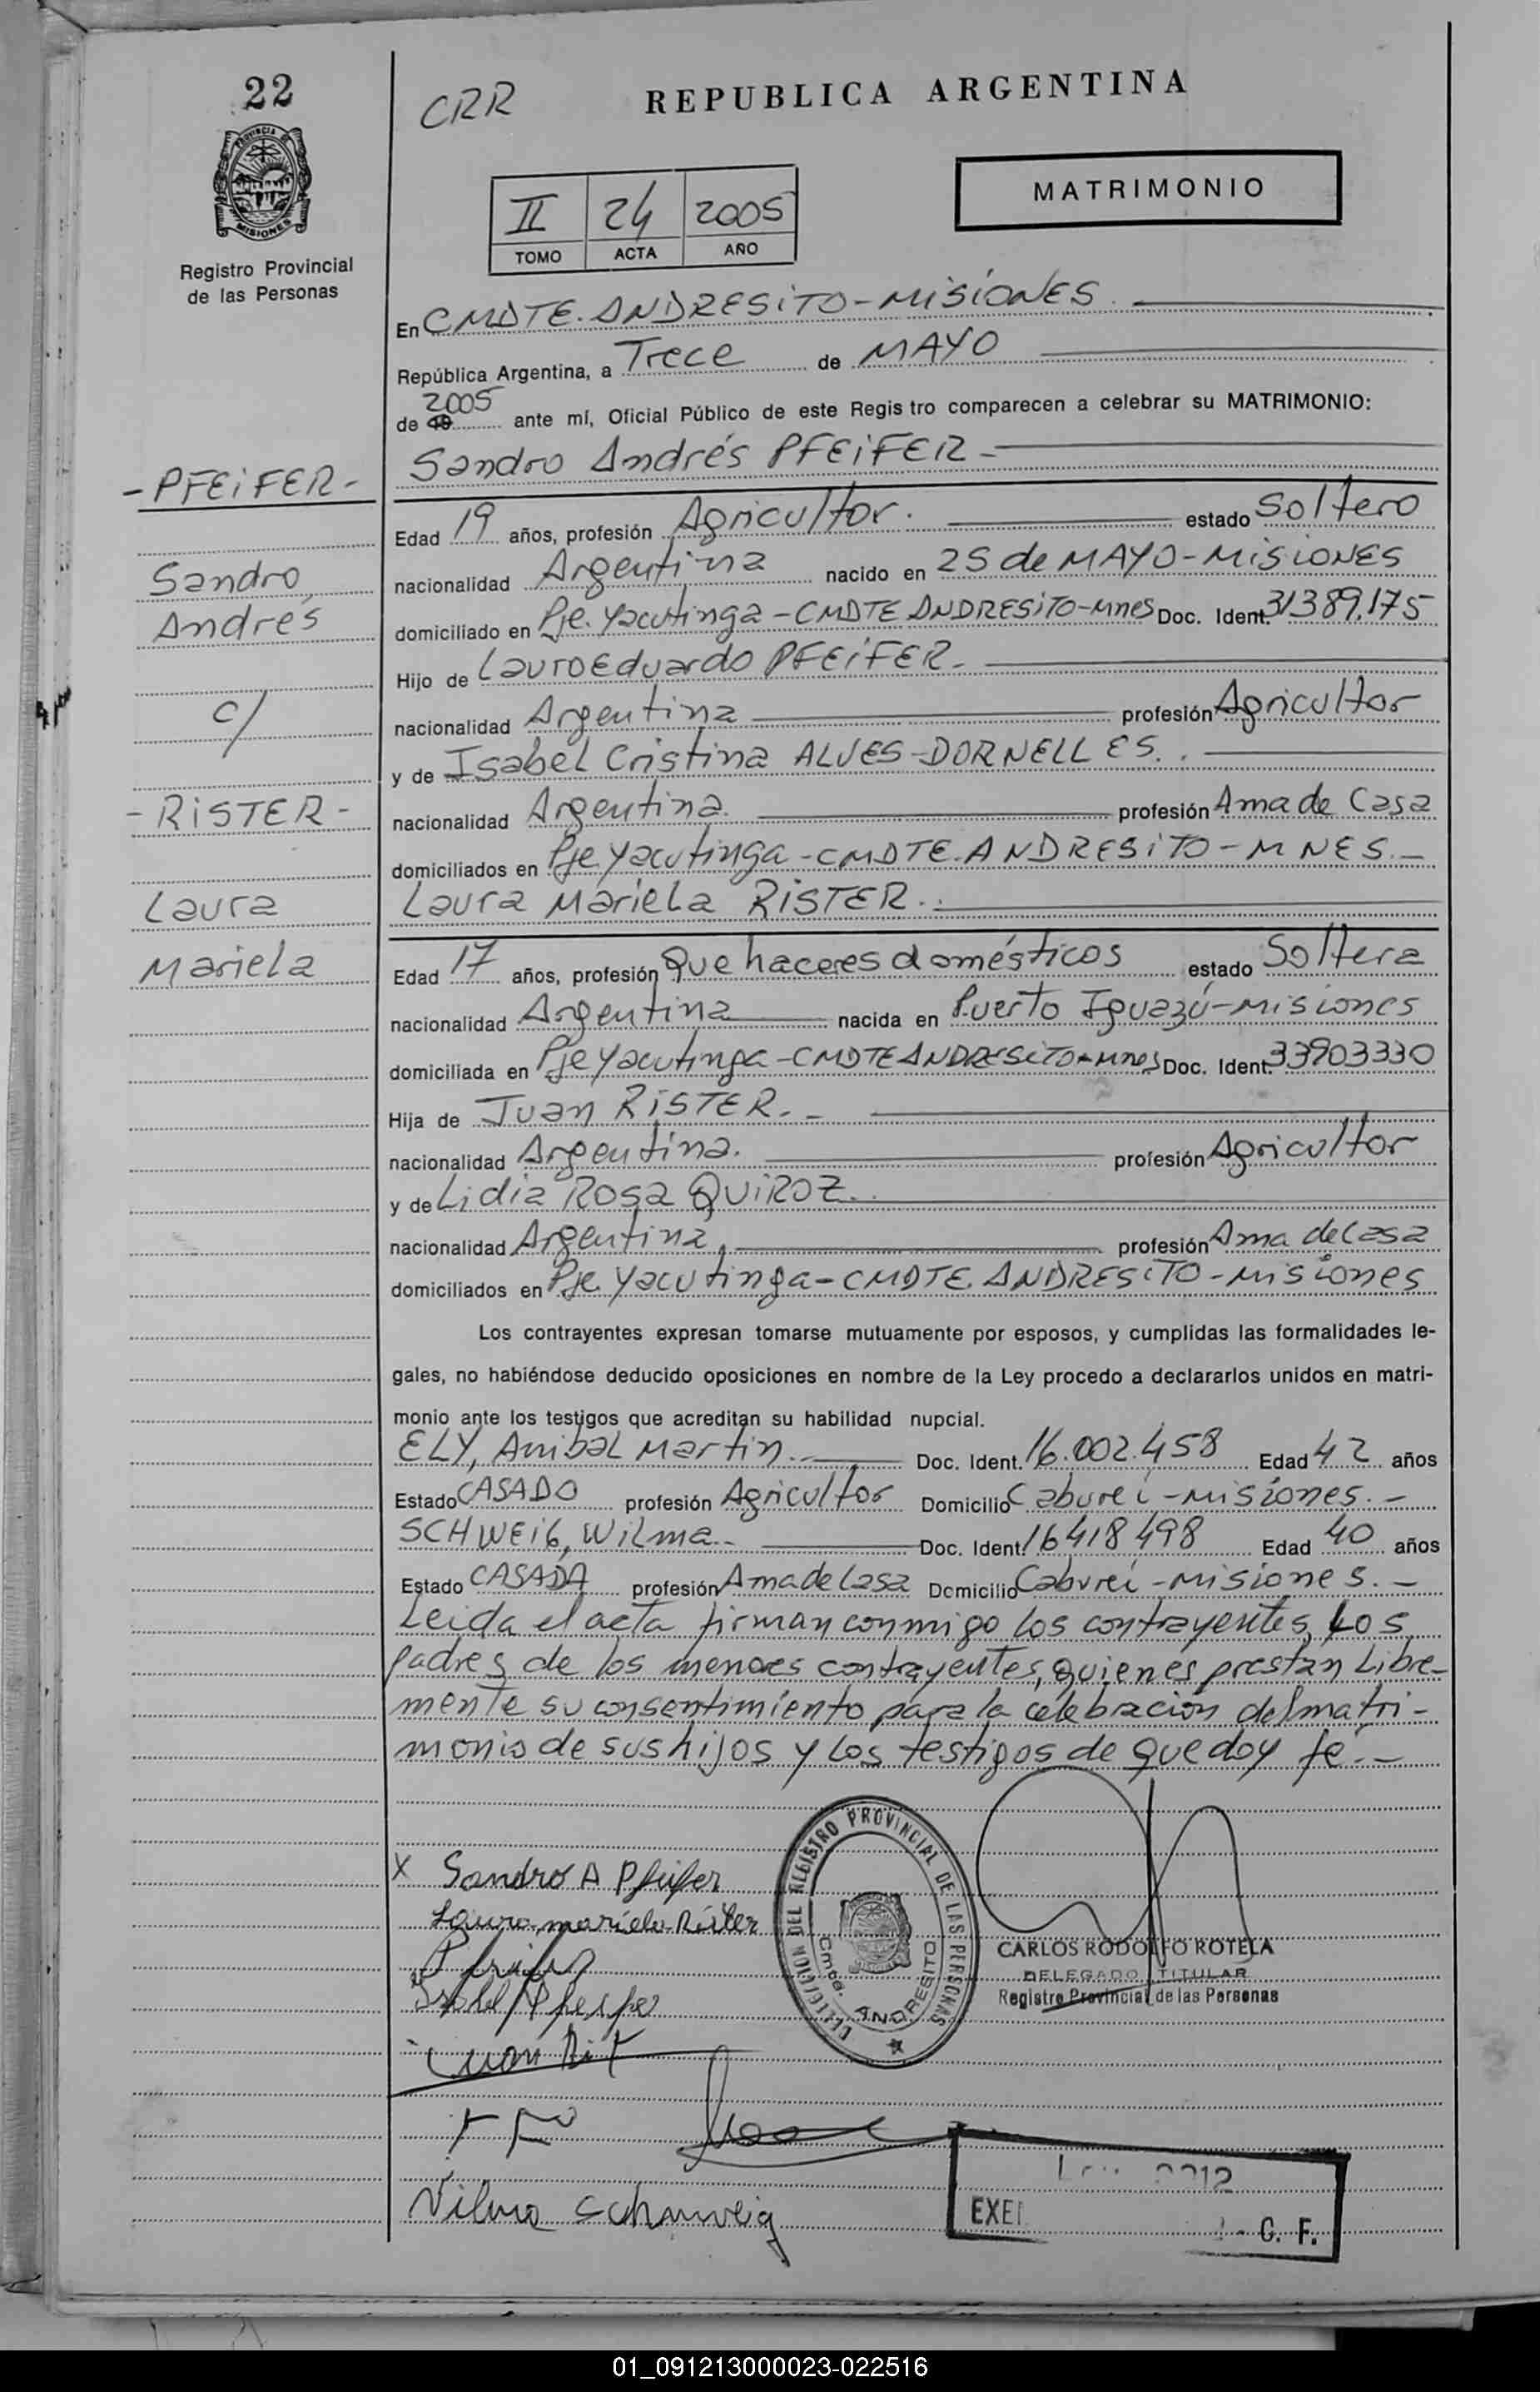 22
CRR
REPUBLICA ARGENTINA
PROVINCIA DE MISIONES
Registro Provincial
de las Personas
II 24 2005
TOMO ACTA AÑO
MATRIMONIO
En CMDTE. ANDRESITO-MISIONES.
República Argentina, a Trece de MAYO
de 19 2005 ante mí, Oficial Público de este Regis tro comparecen a celebrar su MATRIMONIO:
Sandro Andrés PFEIFER-
-PFEIFER-
Edad 19 años, profesión Agricultor. estado Soltero
Sandro,
nacionalidad Argentina nacido en 25 de MAYO-MISIONES
Andrés
domiciliado en Pje. Yacutinga-CMDTE ANDRESITO-Mnes Doc. Ident. 31389.175
Hijo de Lauro Eduardo PFEIFER.-
c/
nacionalidad Argentina profesión Agricultor
y de Isabel Cristina ALVES-DORNELLES..
-RISTER-
nacionalidad Argentina. profesión Ama de Casa
domiciliados en Pje Yacutinga-CMDTE.ANDRESITO-MNES.-
Laura
Laura Mariela RISTER..
Mariela
Edad 17 años, profesión Que haceres domésticos estado Soltera
nacionalidad Argentina nacida en Puerto Iguazú-Misiones
domiciliada en Pje Yacutinga-CMDTE ANDRESITO-Mnes Doc. Ident. 33903330
Hija de Juan RISTER.-
nacionalidad Argentina. profesión Agricultor
y de Lidia Rosa QUIROZ..
nacionalidad Argentina, profesión Ama de Casa
domiciliados en Pje. Yacutinga-CMDTE. ANDRESITO-Misiones
Los contrayentes expresan tomarse mutuamente por esposos, y cumplidas las formalidades le-
gales, no habiéndose deducido oposiciones en nombre de la Ley procedo a declararlos unidos en matri-
monio ante los testigos que acreditan su habilidad nupcial.
ELY, Anibal Martin.. Doc. Ident. 16.002.458 Edad 42 años
Estado CASADO profesión Agricultor Domicilio Caburei-Misiones.-
SCHWEIG, Wilma.. Doc. Ident. 16418498 Edad 40 años
Estado CASADA profesión Ama de Casa Domicilio Caburei-Misiones.-
Leida el acta firman conmigo los contrayentes, Los
Padres de los menores contrayentes, quienes prestan Libre-
mente su consentimiento para la celebración del matri-
monio de sus hijos y Los testigos de que doy fe.-
X Sandro A Pfeifer
Laura mariela Rister
Isabel Pfeifer
Juan Rist
DELEGACION DEL REGISTRO PROVINCIAL DE LAS PERSONAS
Cmte. ANDRESITO
CARLOS RODOLFO ROTELA
DELEGADO TITULAR
Registro Provincial de las Personas
Vilma Schanveig
EXE
C. F.
01_091213000023-022516